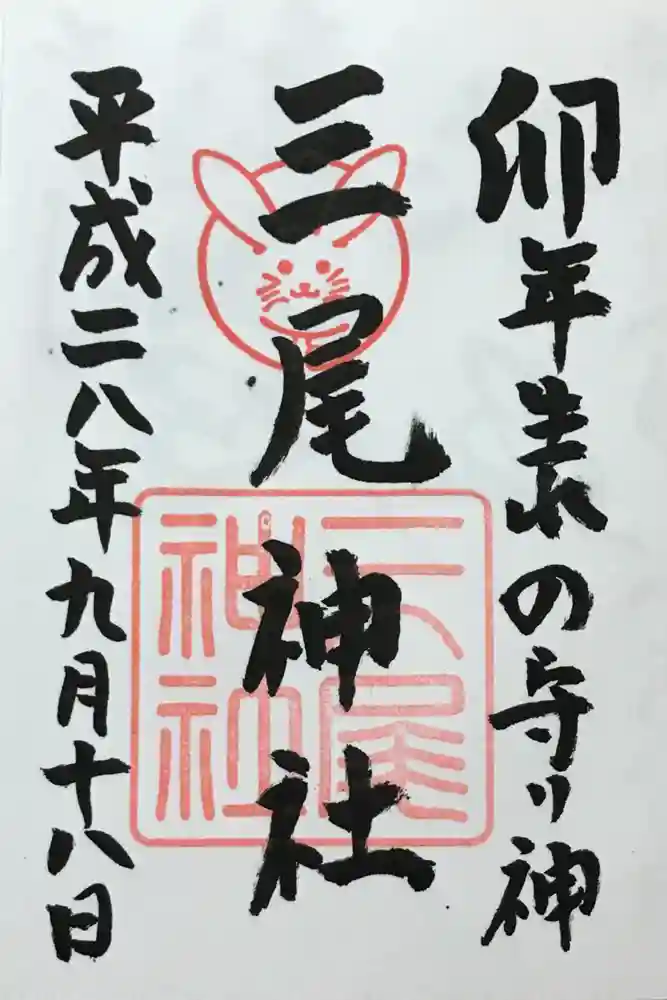 卯年生れの守り神
三尾神社
三尾神社
平成二八年九月十八日